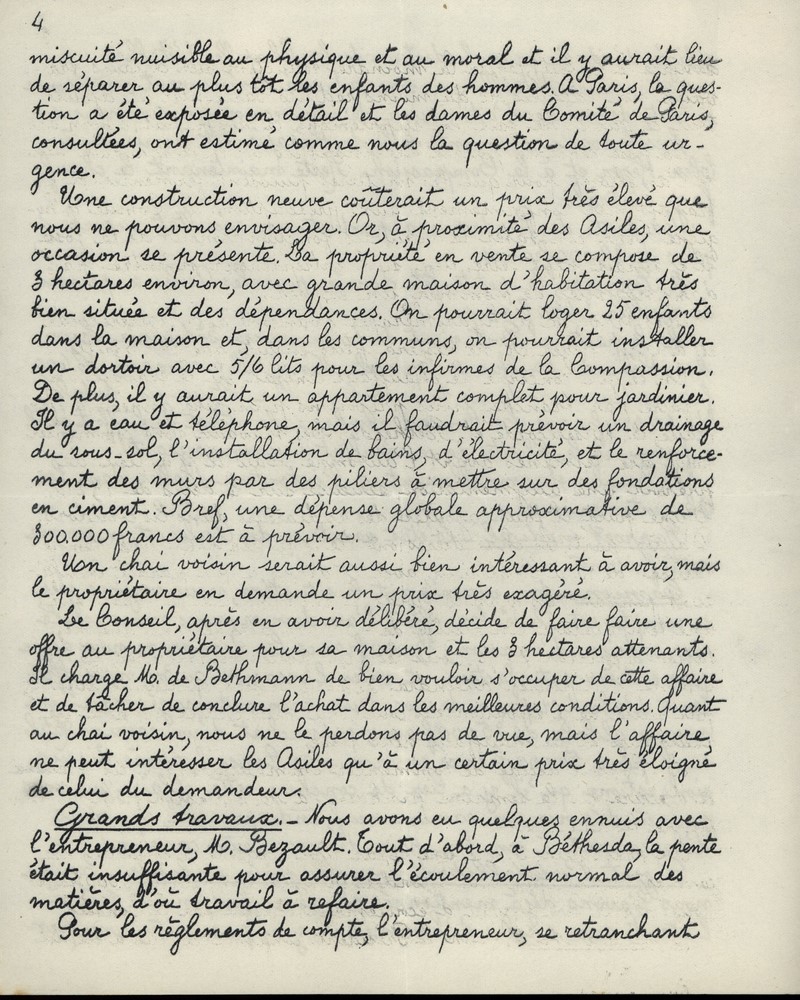 4
miscuité nuisible au physique et au moral et il y aurait lieu
de séparer au plus tôt les enfants des hommes. A Paris, la ques-
tion a été exposée en détail et les dames du Comité de Paris,
consultées, ont estimé comme nous la question de toute ur-
gence.
Une construction neuve coûterait un prix très élevé que
nous ne pouvons envisager. Or, à proximité des Asiles, une
occasion se présente. La propriété en vente se compose de
3 hectares environ, avec grande maison d'habitation très
bien située et des dépendances. On pourrait loger 25 enfants
dans la maison et, dans les communs, on pourrait installer
un dortoir avec 5/6 lits pour les infirmes de la Compassion.
De plus, il y aurait un appartement complet pour jardinier.
Il y a eau et téléphone, mais il faudrait prévoir un drainage
du sous-sol, l'installation de bains, d'électricité, et le renforce-
ment des murs par des piliers à mettre sur des fondations
en ciment. Bref, une dépense globale approximative de
300.000 francs est à prévoir.
Un chai voisin serait aussi bien intéressant à avoir, mais
le propriétaire en demande un prix très exagéré.
Le Conseil, après en avoir délibéré, décide de faire faire une
offre au propriétaire pour sa maison et les 3 hectares attenants.
Il charge M. de Bethmann de bien vouloir s'occuper de cette affaire
et de tâcher de conclure l'achat dans les meilleures conditions. Quant
au chai voisin, nous ne le perdons pas de vue, mais l'affaire
ne peut intéresser les Asiles qu'à un certain prix très éloigné
de celui du demandeur.
Grands travaux. - Nous avons eu quelques ennuis avec
l'entrepreneur, M. Bezault. Tout d'abord, à Béthesda, la pente
était insuffisante pour assurer l'écoulement normal des
matières, d'où travail à refaire.
Pour les règlements de compte, l'entrepreneur, se retranchant